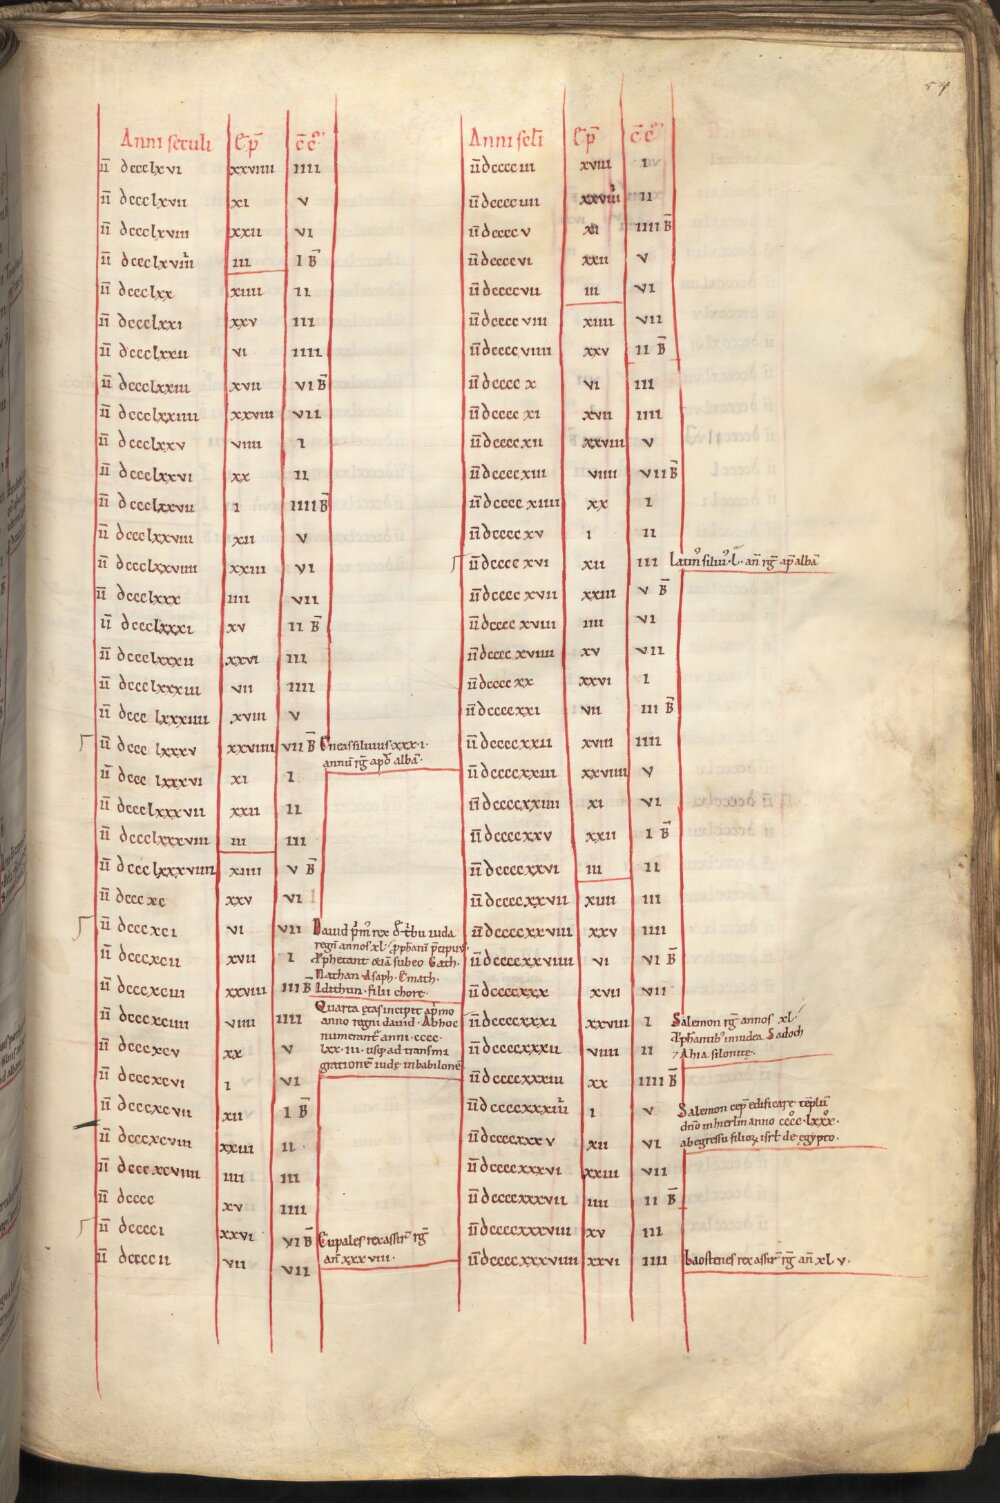 54
Anni seculi Ep̄ c̄c̄
īī dccclxvi xxviiii iiii
īī dccclxvii xi v
īī dccclxviii xxii vi
īī dccclxviiii iii i B̄
īī dccclxx xiiii ii
īī dccclxxi xxv iii
īī dccclxxii vi iiii
īī dccclxxiii xvii vi B̄
īī dccclxxiiii xxviii vii
īī dccclxxv viiii i
īī dccclxxvi xx ii
īī dccclxxvii i iiii B̄
īī dccclxxviii xii v
īī dccclxxviiii xxiii vi
īī dccclxxx iiii vii
īī dccclxxxi xv ii B̄
īī dccclxxxii xxvi iii
īī dccclxxxiii vii iiii
īī dccclxxxiiii xviii v
īī dccclxxxv xxviiii vii B̄ Eneassiluius xxx·i·
annū rḡ apđ albā·
īī dccclxxxvi xi i
īī dccclxxxvii xxii ii
īī dccclxxxviii iii iii
īī dccclxxxviiii xiiii v B̄
īī dcccxc xxv vi
īī dcccxci vi vii Dauid p̄mꝰ rex de t̄bu iuda
regn̄ annos xl·
īī dcccxcii xvii i ꝓphetant etiā sub eo Gath·
Nathan·Asaph·Emath·
īī dcccxciii xxviii iii B̄ Idithun·filii chore·
īī dcccxciiii viiii iiii Quarta etas incipit
anno regni dauid·Abhoc
numerant᷑ anni·cccc·
īī dcccxcv xx v lxx·iii·usq; ad transmi
gratione iudę inbabilonē
īī dcccxcvi i vi
īī dcccxcvii xii i B̄
īī dcccxcviii xxiii ii
īī dcccxcviiii iiii iii
īī dcccc xv iiii
īī dcccci xxvi vi B̄ Eupales rex assir᷑ rḡ
an̄ xxx·viii·
īī dccccii vii vii
Anni scl̄i Ep̄ c̄c̄
īī dcccciii xviii i
īī dcccciiii xxviiii ii
īī dccccv xi iiii B̄
īī dccccvi xxii v
īī dccccvii iii vi
īī dccccviii xiiii vii
īī dccccviiii xxv ii B̄
īī dccccx vi iii
īī dccccxi xvii iiii
īī dccccxii xxviii v
īī dccccxiii viiii vii B̄
īī dccccxiiii xx i
īī dccccxv i ii
īī dccccxvi xii iii Latinꝰ siluiꝰ·l·an̄ rḡ ap̄ albā
īī dccccxvii xxiii v B̄
īī dccccxviii iiii vi
īī dccccxviiii xv vii
īī dccccxx xxvi i
īī dccccxxi vii iii B̄
īī dccccxxii xviii iiii
īī dccccxxiii xxviiii v
īī dccccxxiiii xi vi
īī dccccxxv xxii i B̄
īī dccccxxvi iii ii
īī dccccxxvii xiiii iii
īī dccccxxviii xxv iiii
īī dccccxxviiii vi vi B̄
īī dccccxxx xvii vii
īī dccccxxxi xxviii i Salemon rḡ annos xl·
ꝓphantibꝰ iniudea Sadoch
īī dccccxxxii viiii ii ⁊Ahia silonitę·
īī dccccxxxiii xx iiii B̄
īī dccccxxxiiii i v Salemon cep̄ edificare tēplū
dn̄o inhierlm̄ anno cccc·lxxx·
īī dccccxxxv xii vi abegressu filioꝝ isrl̄ de egypto·
īī dccccxxxvi xxiii vii
īī dccccxxxvii iiii ii B̄
īī dccccxxxviii xv iii
īī dccccxxxviiii xxvi iiii Laostenes rex assir᷑ rḡ an̄ xl v·